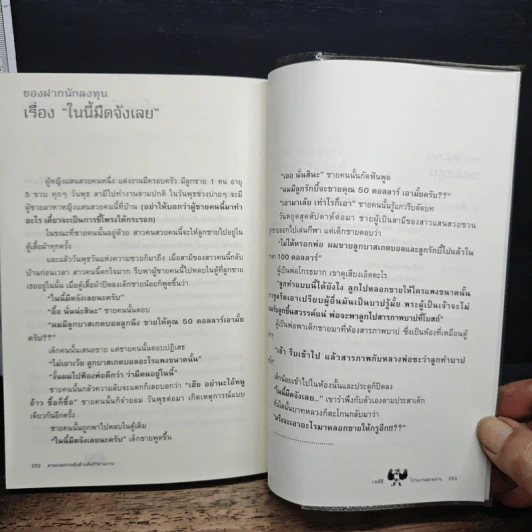 ของฝากนักลงทุน
เรื่อง "ในนี้มืดจังเลย"
ผู้หญิงแสนสวยคนหนึ่ง แต่งงานมีครอบครัว มีลูกชาย 1 คน อายุ
5 ขวบ ทุกๆ วันพุธ สามีไปทำงานตามปกติ ในวันพุธช่วงบ่ายๆ จะมี
ผู้ชายมาหาหญิงแสนสวยคนนี้ที่บ้าน (อย่าให้บอกว่าผู้ชายคนนี้มาทำ
อะไร เดี๋ยวจะเป็นการชี้โพรงให้กระรอก)
ในขณะที่ชายคนนั้นอยู่ด้วย สาวคนสวยคนนี้จะให้ลูกชายไปอยู่ใน
ตู้เสื้อผ้าทุกครั้ง
และแล้ววันพุธวันแห่งความซวยก็มาถึง เมื่อสามีของสาวคนนี้กลับ
บ้านก่อนเวลา สาวคนนี้ตกใจมาก รีบพาผู้ชายคนนั้นไปหลบในตู้ที่ลูกชาย
เธออยู่ในนั้น เมื่อตู้เสื้อผ้าปิดลงเด็กชายน้อยก็พูดขึ้นว่า
"ในนี้มืดจังเลยนะครับ"
"อือ นั่นน่ะสินะ" ชายคนนั้นตอบ
"ผมมีลูกบาสเกตบอลลูกนึง ขายให้คุณ 50 ดอลลาร์เอามั้ย
ครับ??"
เด็กคนนั้นเสนอขาย แต่ชายคนนั้นตอบปฏิเสธ
"ไม่เอาเว้ย ลูกบาสเกตบอลอะไรแพงขนาดนั้น"
"งั้นผมไปฟ้องพ่อดีกว่า ว่ามีคนอยู่ในนี้"
ชายคนนั้นกลัวความลับจะแตกก็เลยบอกว่า "เฮ้ย อย่านะไอ้หนู
อ้าว ซื้อก็ซื้อ" ชายคนนั้นก็จ่ายเงิน วันพุธต่อมา เกิดเหตุการณ์แบบ
เดียวกันอีกครั้ง
ชายคนนั้นถูกพาไปหลบในตู้เดิม
"ในนี้มืดจังเลยนะครับ" เด็กชายพูดขึ้น
252
"เออ นั่นสินะ" ชายคนนั้นกัดฟันพูด
"ผมมีลูกรักบี้จะขายคุณ 50 ดอลลาร์ เอามั้ยครับ??"
"เอามาเลย เท่าไรก็เอา" ชายคนนั้นรู้แกวรีบตัดบท
วันหยุดสุดสัปดาห์ต่อมา ชายผู้เป็นสามีของสาวแสนสวยชวน
ออกไปเล่นกีฬา แต่เด็กชายตอบว่า
"ไม่ได้หรอกพ่อ ผมขายลูกบาสเกตบอลและลูกรักบี้ไปแล้วใน
100 ดอลลาร์"
ผู้เป็นพ่อโกรธมาก เขาดุเสียงเอ็ดอะไร
"ลูกทำแบบนี้ได้ยังไง ลูกไปหลอกขายให้ใครแพงขนาดนั้น
เอาเปรียบผู้อื่นมันเป็นบาปรู้มั้ย พระผู้เป็นเจ้าจะไม่
ลูกขึ้นสวรรค์แน่ พ่อจะพาลูกไปสารภาพบาปที่โบสถ์"
ผู้เป็นพ่อพาเด็กชายมาที่ห้องสารภาพบาป ซึ่งเป็นห้องที่เหมือนตู้
รีบเข้าไป แล้วสารภาพกับหลวงพ่อซะว่าลูกทำบาป
เด็กน้อยเข้าไปในห้องนั้นและประตูก็ปิดลง
"ในนี้มืดจังเลย..." เขารำพึงกับตัวเองตามประสาเด็ก
ทันใดนั้นบาทหลวงก็ตะโกนกลับมาว่า
"ครั้งจะเอาอะไรมาหลอกขายให้กรูอีก!!??"
253